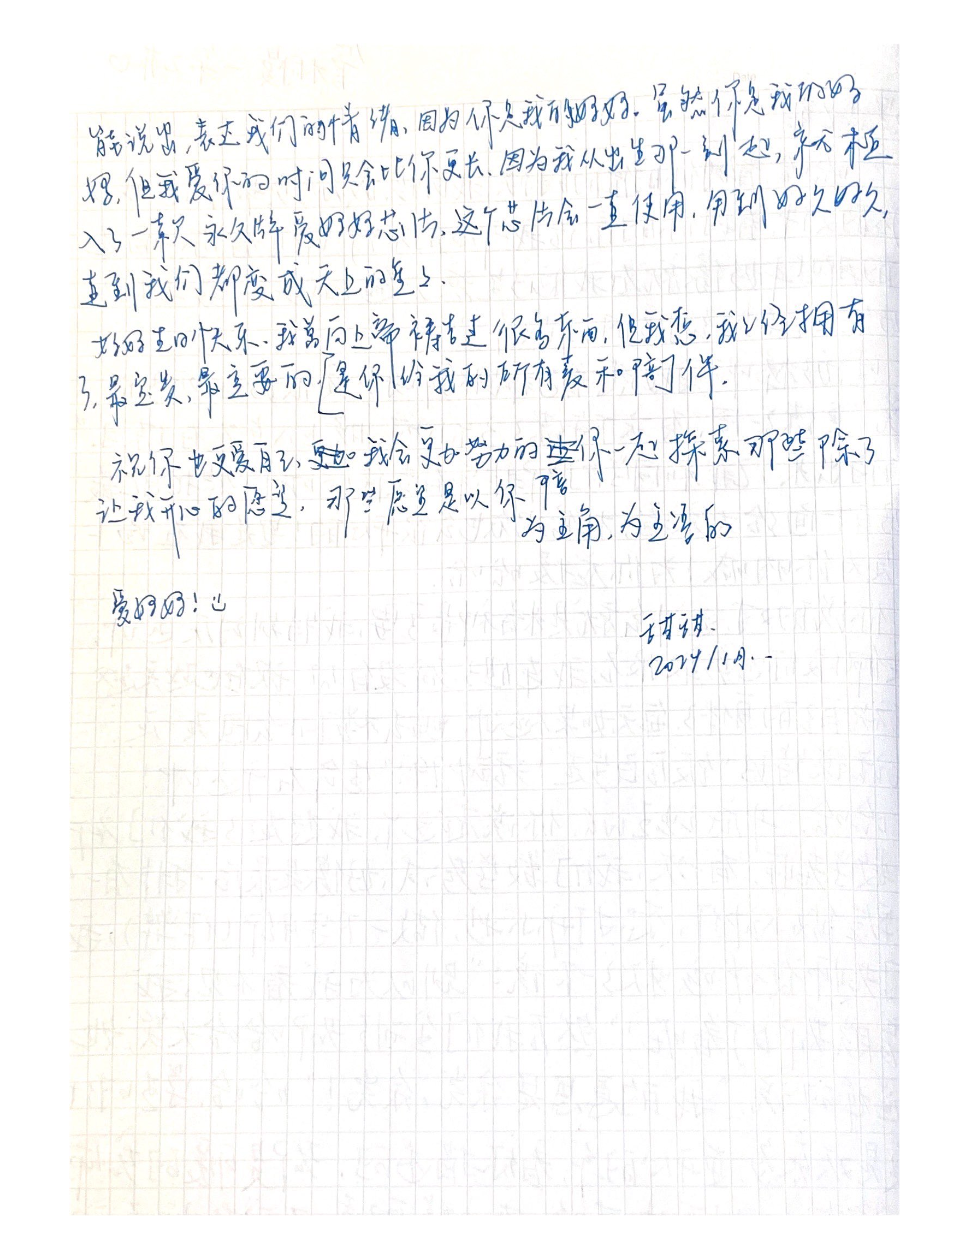 能说出,表达我们的情绪,因为你是我的好好。虽然你是我的好
好,但我爱你的时间只会比你更长,因为我从出生那一刻起,就植
入了一束永久牌爱好好芯片,这个芯片会一直使用,用到好久好久,
直到我们都变成天上的星星.
好好生日快乐、我曾向上帝祷告过很多东西,但我想,我已经拥有
了,最宝贵,最重要的,[是你给我的所有爱和陪伴.
祝你也更爱自己,我会更加努力的陪你一起探索那些除了
让我开心的愿望,那些愿望是以你
为主角,为主语的
爱好好!
甜甜.
2024/1月..